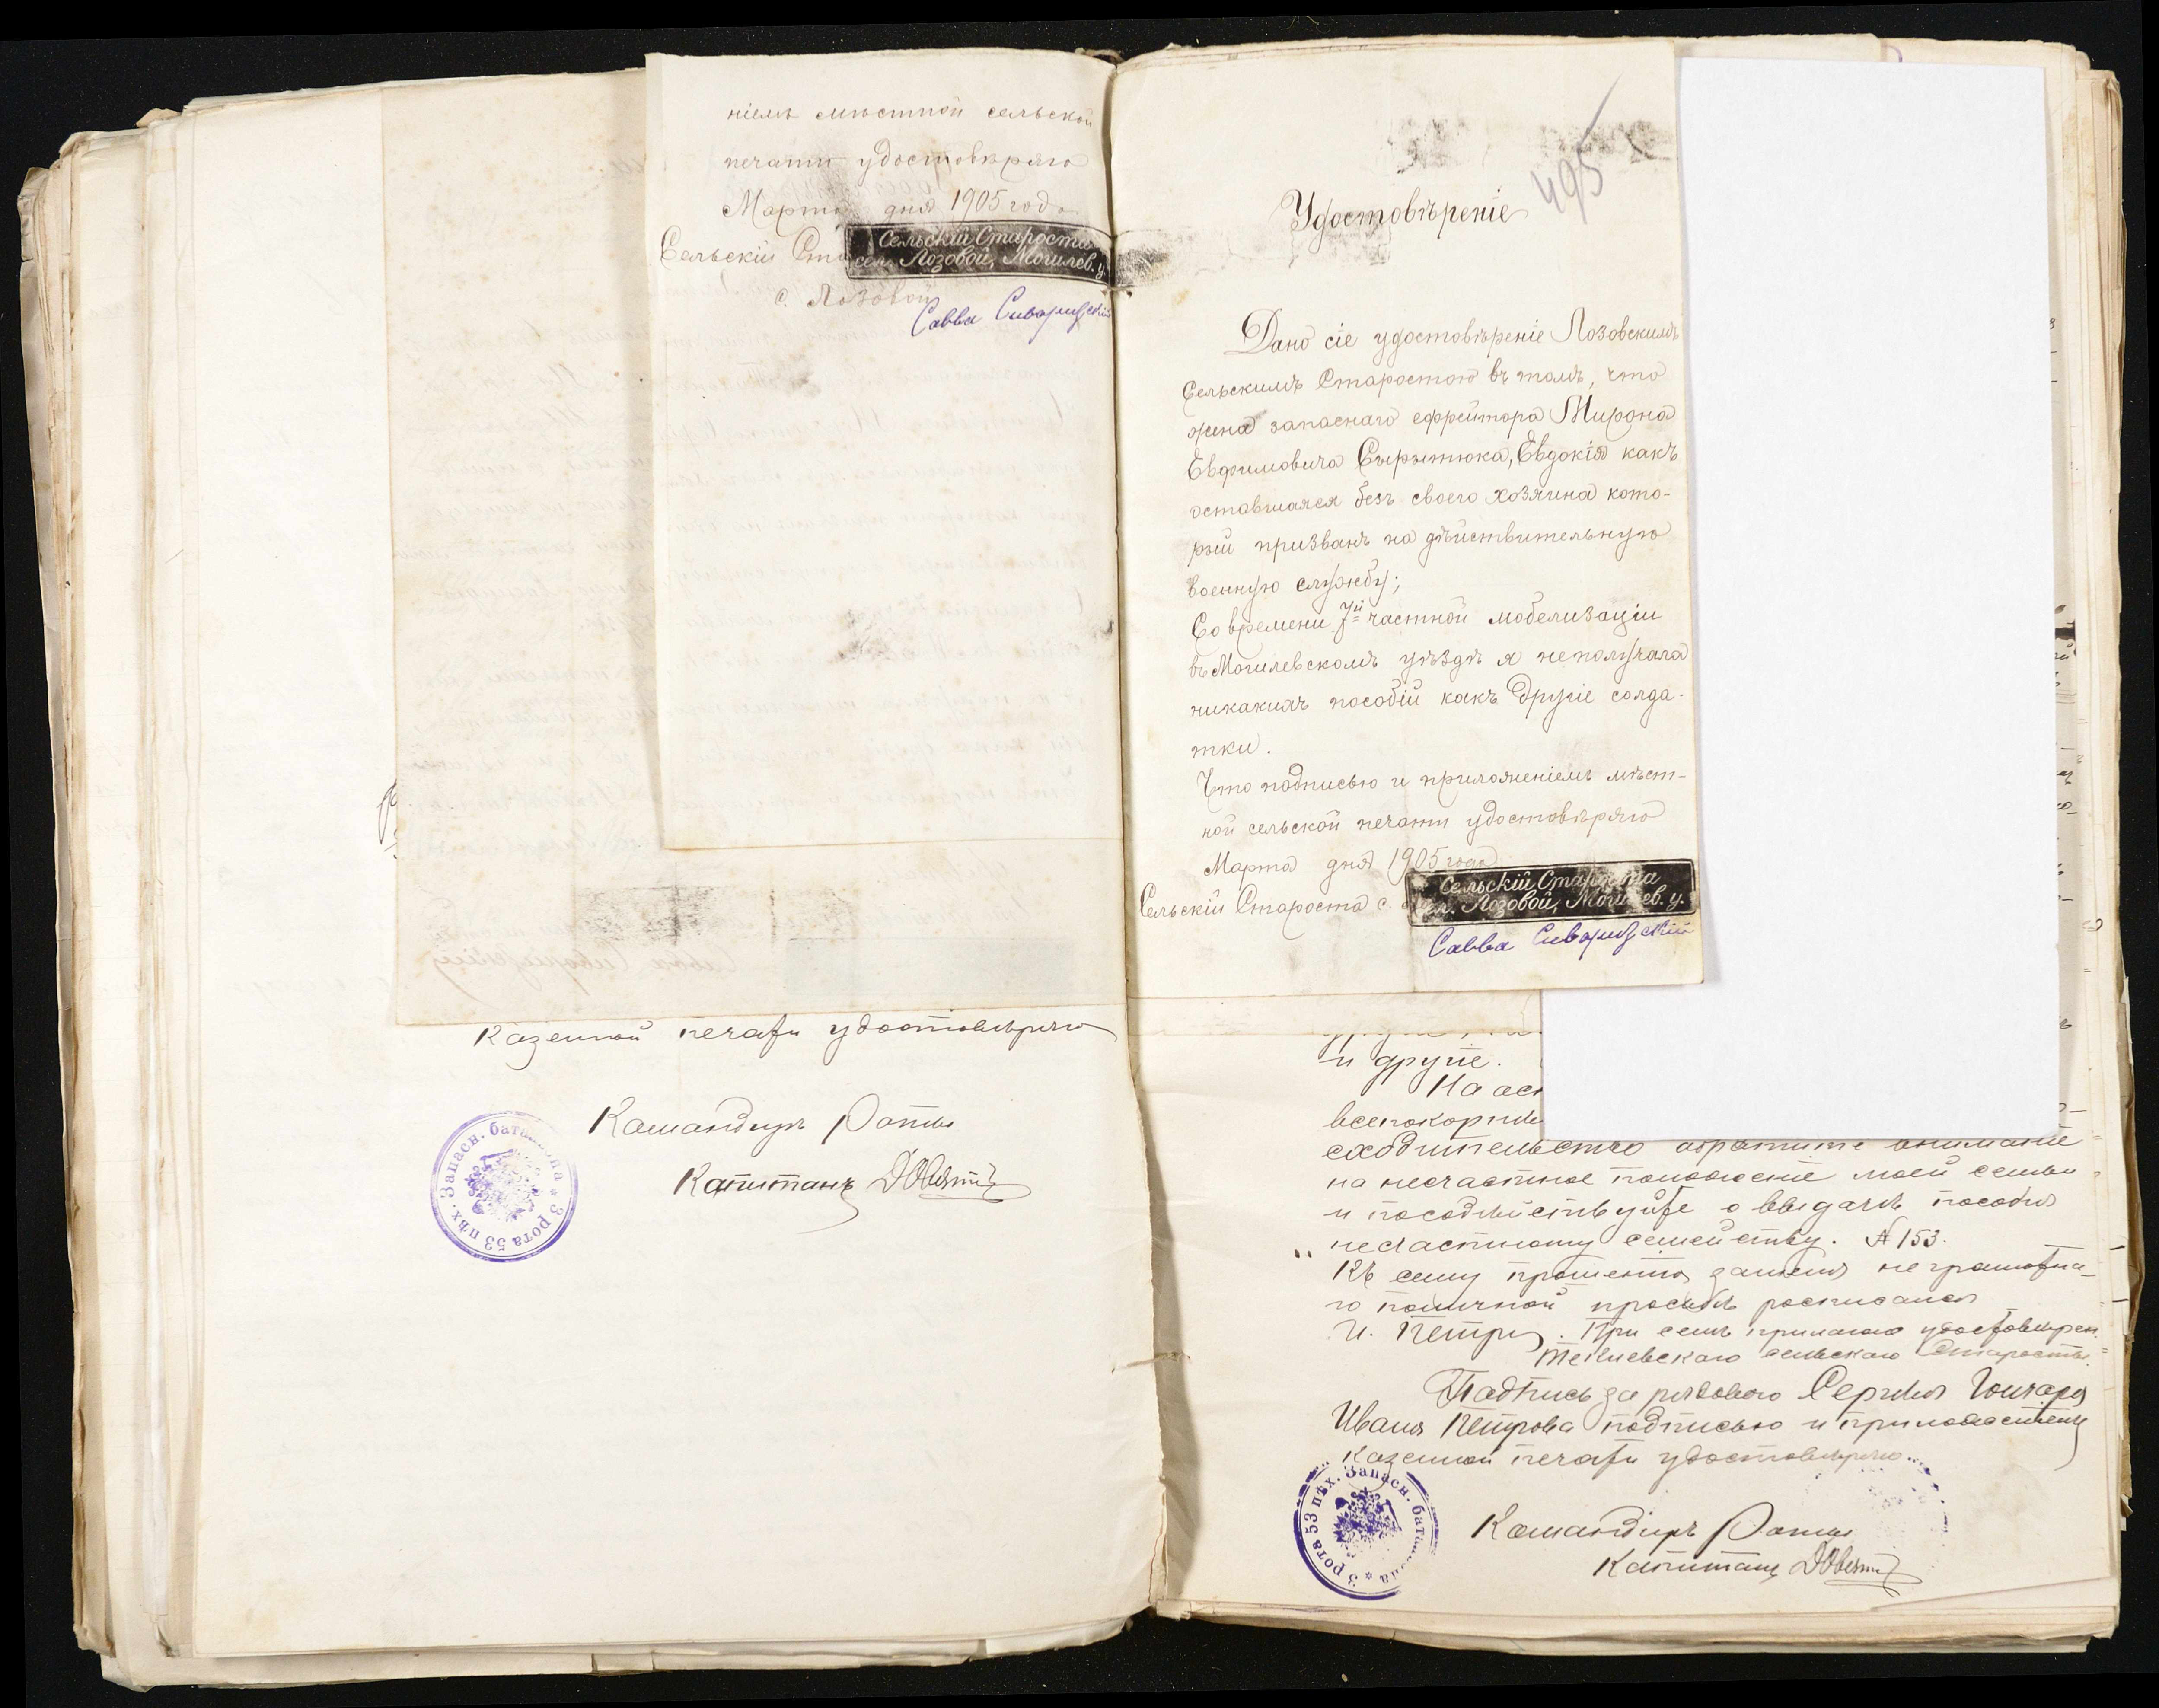 ніемъ мѣстной сельской
печати удостовѣряю
Марта дня 1905 года
Сельскій
Сельскій Староста
сел. Лозовой, Могилев. у.
с. Лозовой
Савва
Казенной печати удостовѣряю
Командиръ Роты
Капитанъ
3 рота 53 пѣх. Запасн. баталіона
495
Удостовѣреніе
Дано сіе удостовѣреніе Лозовскимъ
Сельскимъ Старостою въ томъ, что
жена запаснаго ефрейтора Мирона
Евфимовича Сырытюка, Евдокія какъ
оставшаяся безъ своего хозяина кото-
рый призванъ на дѣйствительную
военную службу;
Со времени 7й частной мобелизаціи
въ Могилевскомъ уѣздѣ я неполучала
никакихъ пособій какъ другіе солда-
тки.
Что подписью и приложеніемъ мѣст-
ной сельской печати удостовѣряю
Марта дня 1905 года
Сельскій Староста с.
Сельскій Староста
сел. Лозовой, Могилев. у.
Савва
и другіе.
На
всепокорнѣ
сходительство обратите вниманіе
на несчастное положеніе моей семьи
и посодѣйствуйте о выдачѣ пособія
несчастному семейству. № 153.
Къ сему прошенію за неграмотна-
го по личной просьбѣ росписался
И. Петровъ. При семъ прилагаю удостовѣрен.
сельскаго Старосты.
Подпись за рядового Сергѣя Гончара
Ивана Петрова подписью и приложеніемъ
казенной печати удостовѣряю.
3 рота 53 пѣх. Запасн. баталіона
Командиръ Роты
Капитанъ